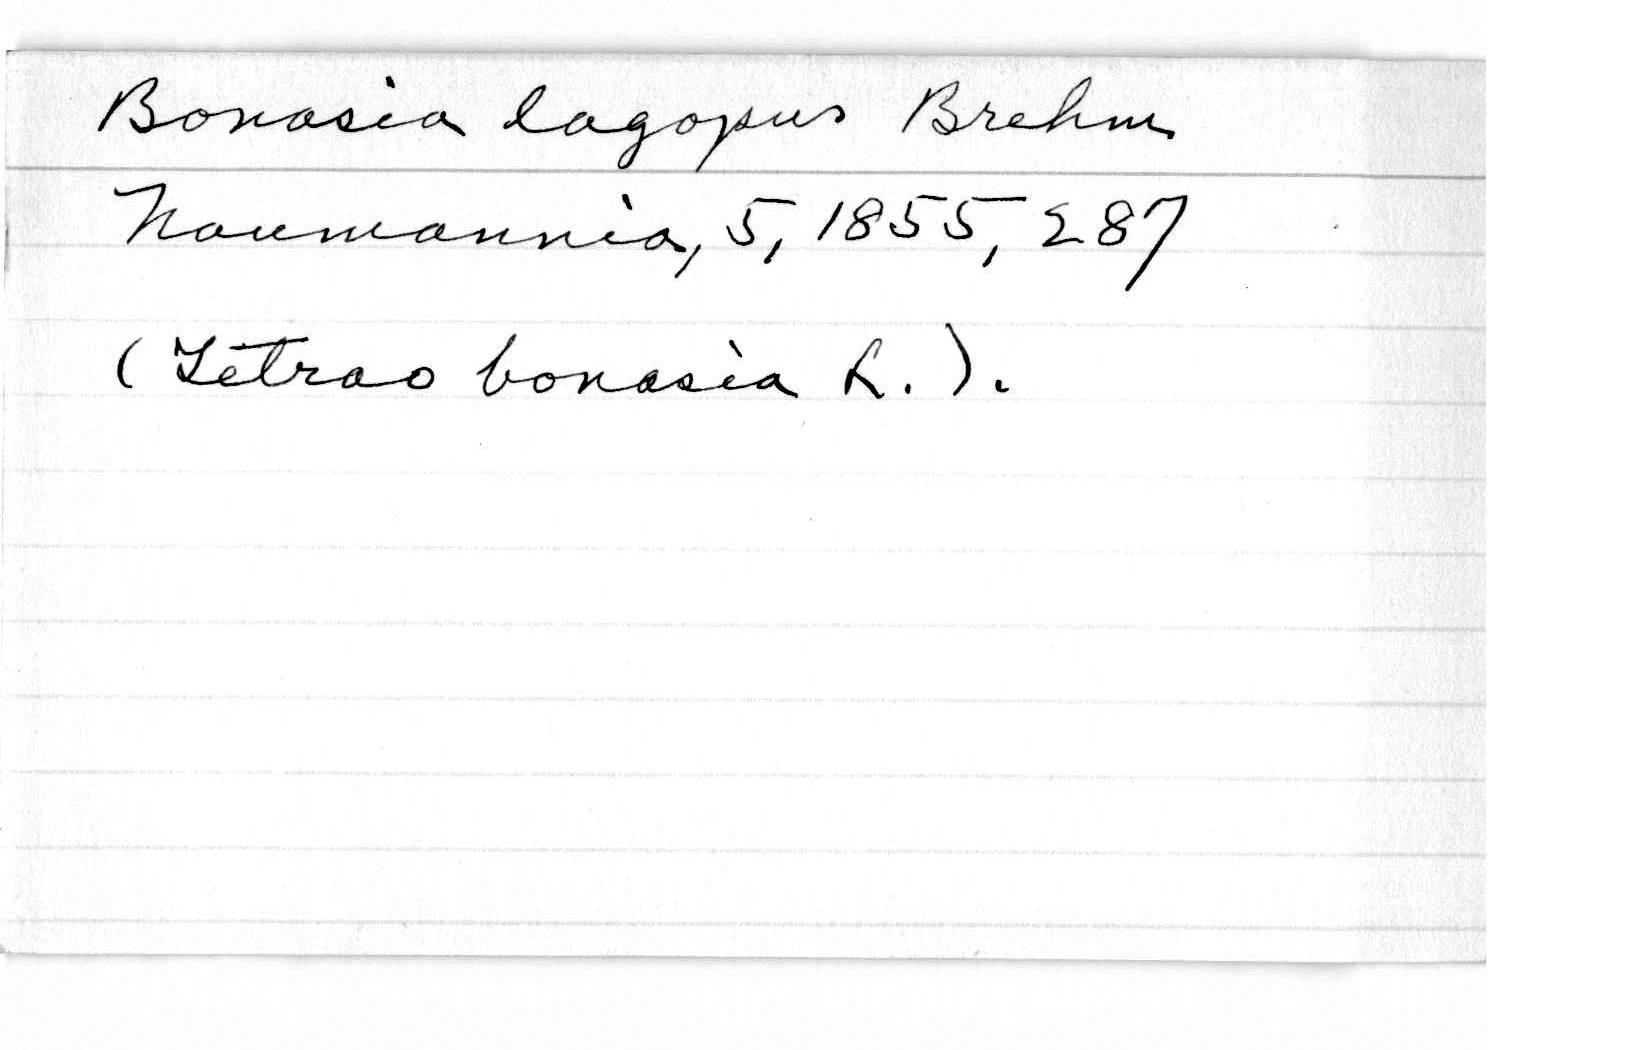 Bonasia lagopus Brehm
Naumannia, 5, 1855, 287
(Tetrao bonasia L.).